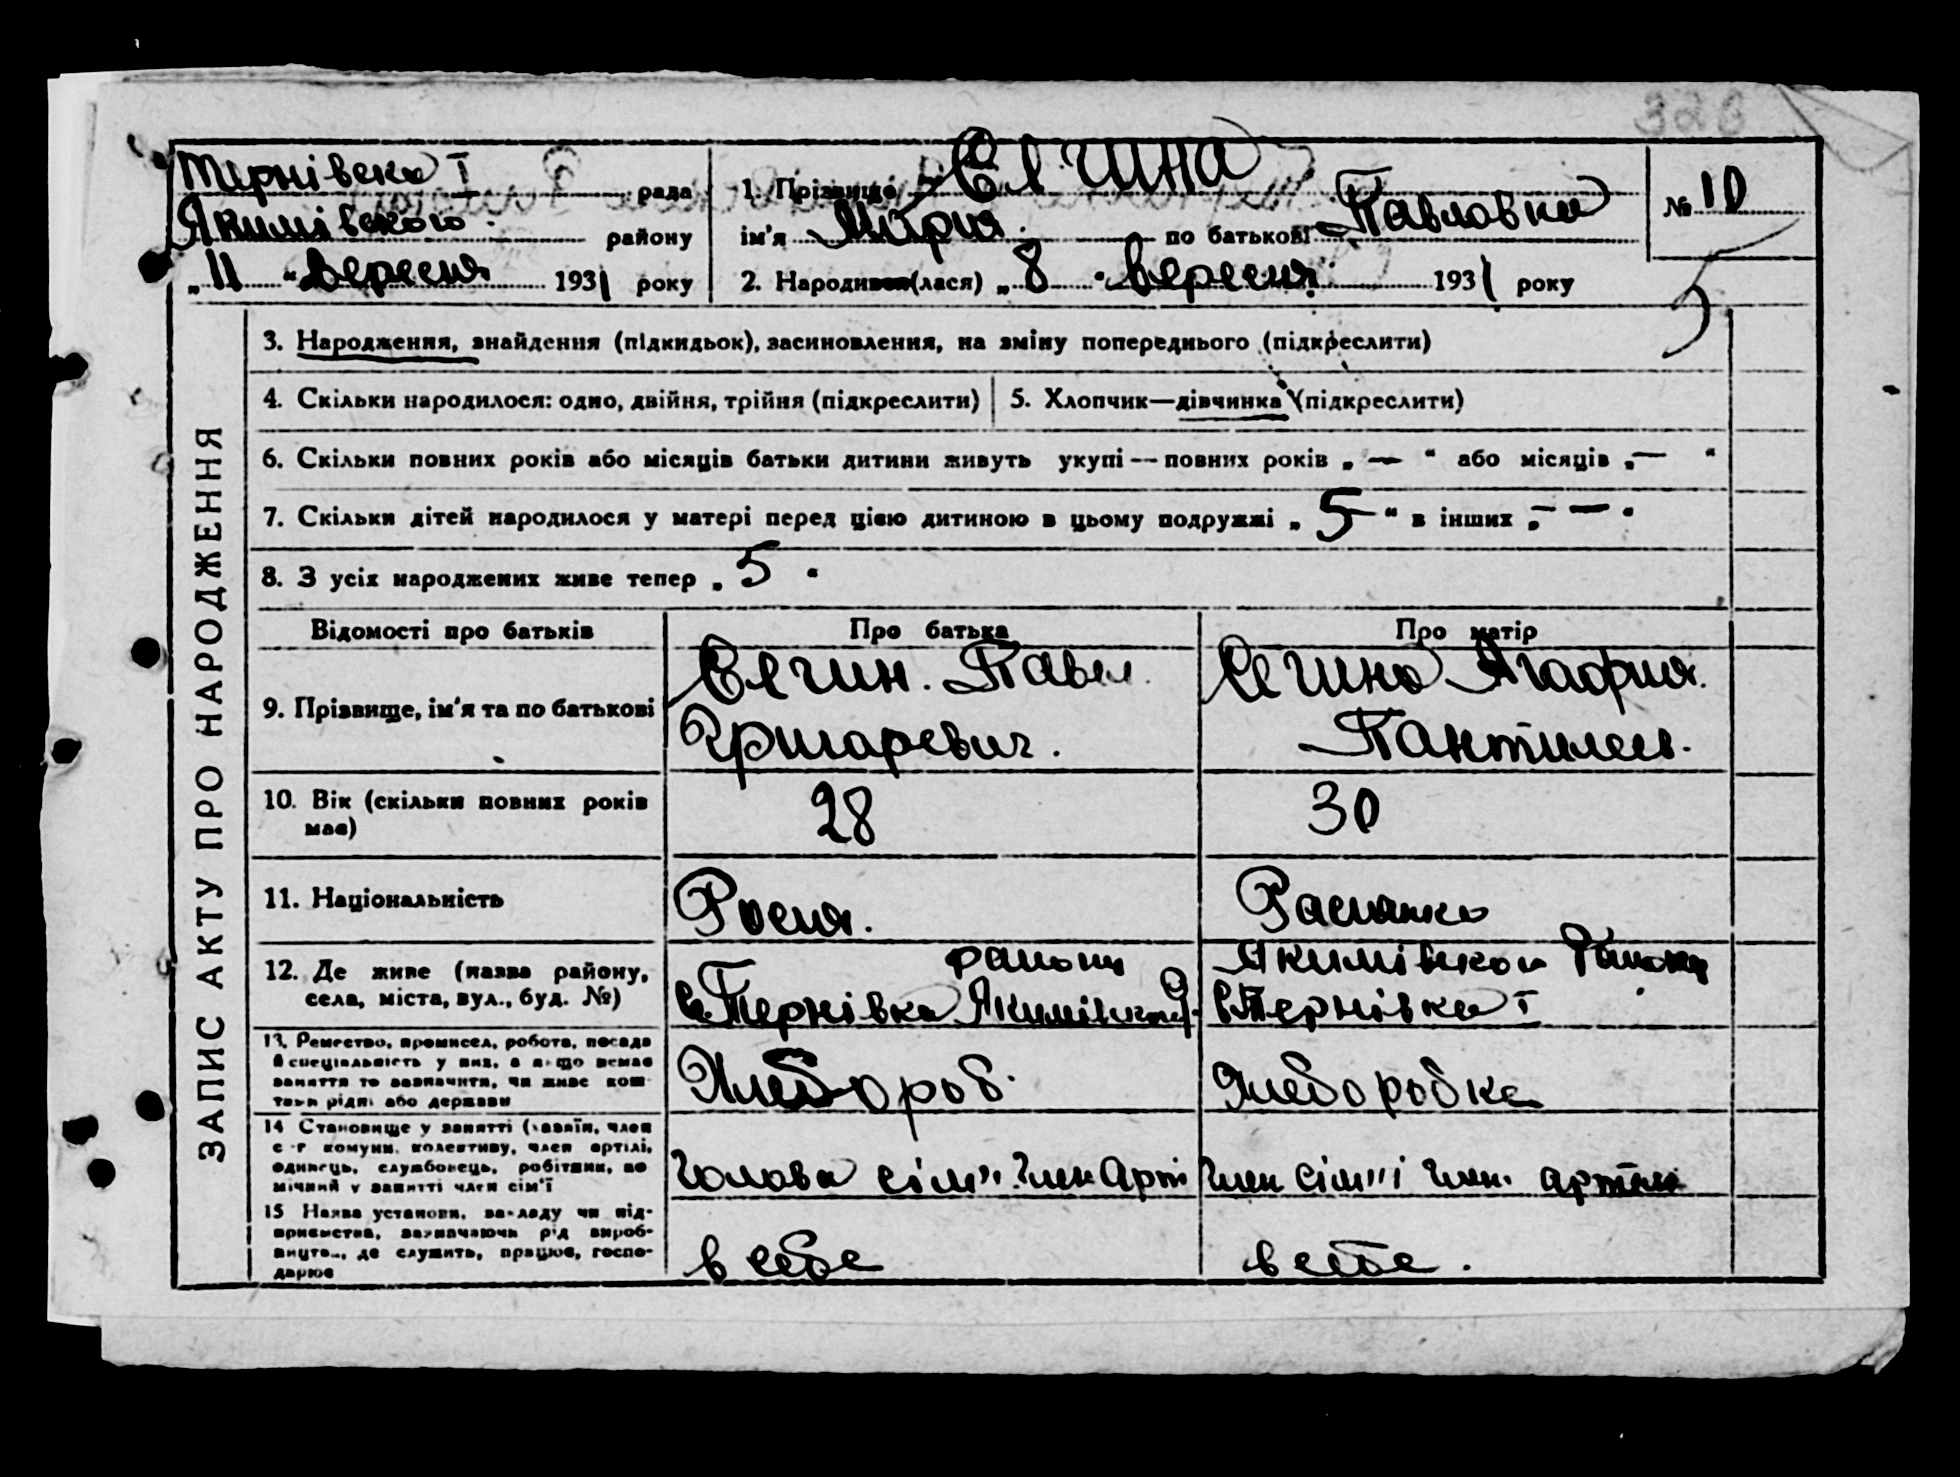 328
Тернівска I рада
Якимівского району
„11“ вересня 1931 року
1. Прізвище Елчина
ім'я Мария по батькові Павловна
2. Народився(лася) „8“ вересня 1931 року
№ 10
5
ЗАПИС АКТУ ПРО НАРОДЖЕННЯ
3. Народження, знайдення (підкидьок), засиновлення, на зміну попереднього (підкреслити)
4. Скільки народилося: одно, двійня, трійня (підкреслити)
5. Хлопчик—дівчинка (підкреслити)
6. Скільки повних років або місяців батьки дитини живуть укупі—повних років „—“ або місяців „—“
7. Скільки дітей народилося у матері перед цією дитиною в цьому подружжі „5“ в інших „—“
8. З усіх народжених живе тепер „5“
Відомості про батьків
Про батька
Про матір
9. Прізвище, ім'я та по батькові
Елчин. Павел
Григаревич.
Елчина Агафия.
Пантилев.
10. Вік (скільки повних років
має)
28
30
11. Національність
Росия.
Расиянка
12. Де живе (назва району,
села, міста, вул., буд. №)
району
с. Тернівка Якимівског
Якимівского району
с Тернівка I
13. Ремество, промисел, робота, посада
й специіальність у них, а якщо немає
заняття то зазначити, чи живе кош-
тами рідні або держави
Хлебороб.
Хлеборобка
14 Становище у занятті (хазяїн, член
с.-г комуни, колективу, член артілі,
одинець, службовець, робітник, по
мічний у занятті член сім'ї
Голова сім"ї член Арт
член сім"ї член. артели
15 Назва установи, закладу чи під-
приємства, зазначаючи рід вироб-
ництв., де служить, працює, госпо-
дарює
в себе
в себе.